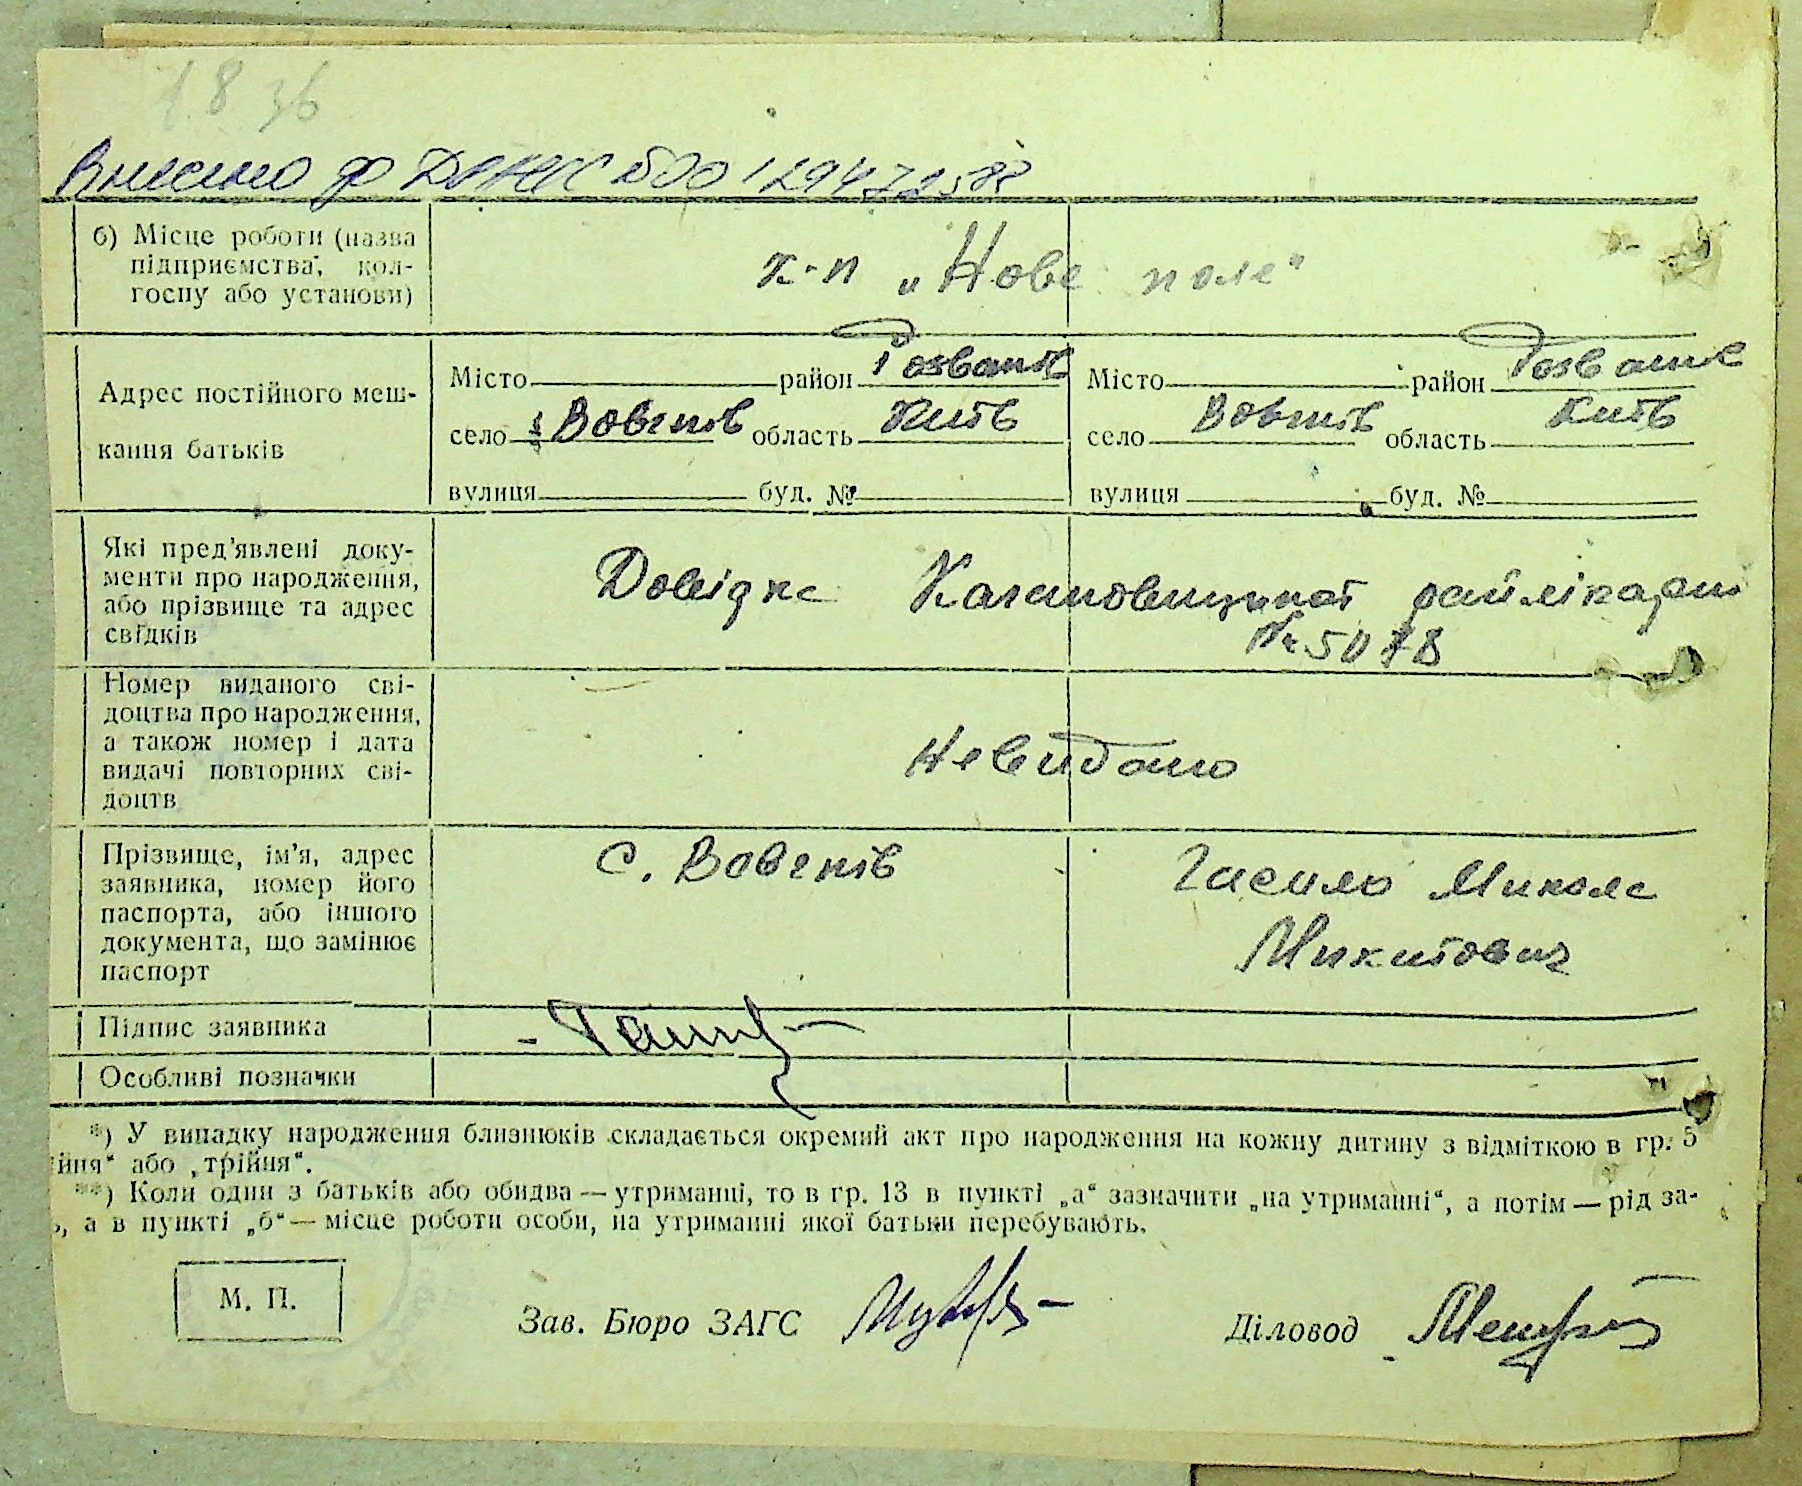 1 8 36
Внесено до ДРАЦС 00129472588
б) Місце роботи (назва
підприємства, кол-
госпу або установи)
к-п „Нове поле“
Адрес постійного меш-
кання батьків
Місто район Розваж
село Вовчків область Київ
вулиця буд. №
Місто район Розваж
село Вовчків область Київ
вулиця буд. №
Які пред'явлені доку-
менти про народження,
або прізвище та адрес
свідків
Довідка Кагановицької райлікарні
№ 5078
Номер виданого сві-
доцтва про народження,
а також номер і дата
видачі повторних сві-
доцтв
Невидано
Прізвище, ім'я, адрес
заявника, номер його
паспорта, або іншого
документа, що замінює
паспорт
с. Вовчків
Микола
Микитович
Підпис заявника
Особливі позначки
*) У випадку народження близнюків складається окремий акт про народження на кожну дитину з відміткою в гр. 5
ійня“ або „трійня“.
**) Коли один з батьків або обидва — утриманці, то в гр. 13 в пункті „а“ зазначити „на утриманні“, а потім — рід за-
ь, а в пункті „б“ — місце роботи особи, на утриманні якої батьки перебувають.
М. П.
Зав. Бюро ЗАГС
Діловод